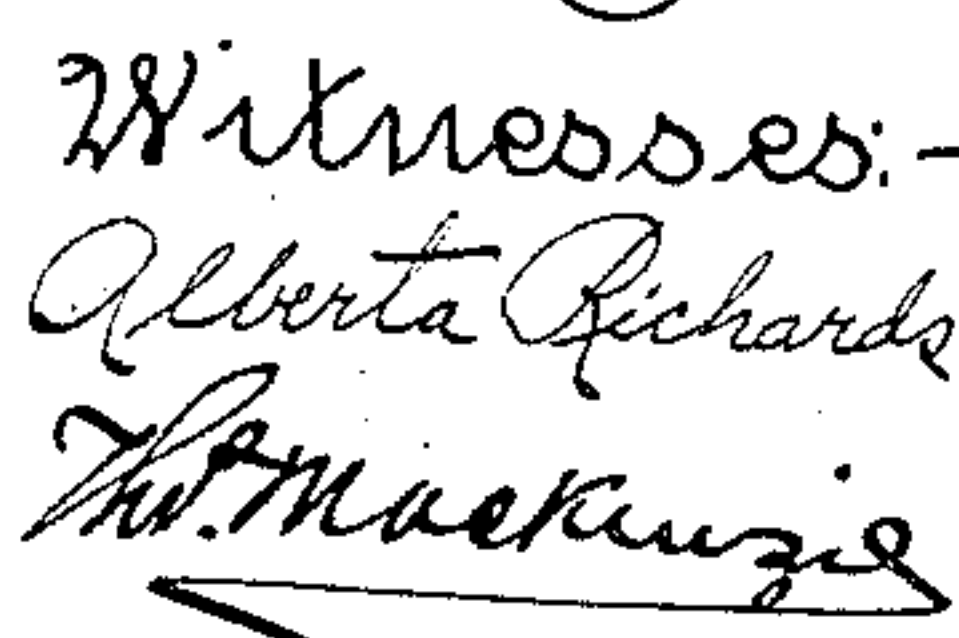 Witnesses:-
Alberta Richards
Thos. MacKenzie